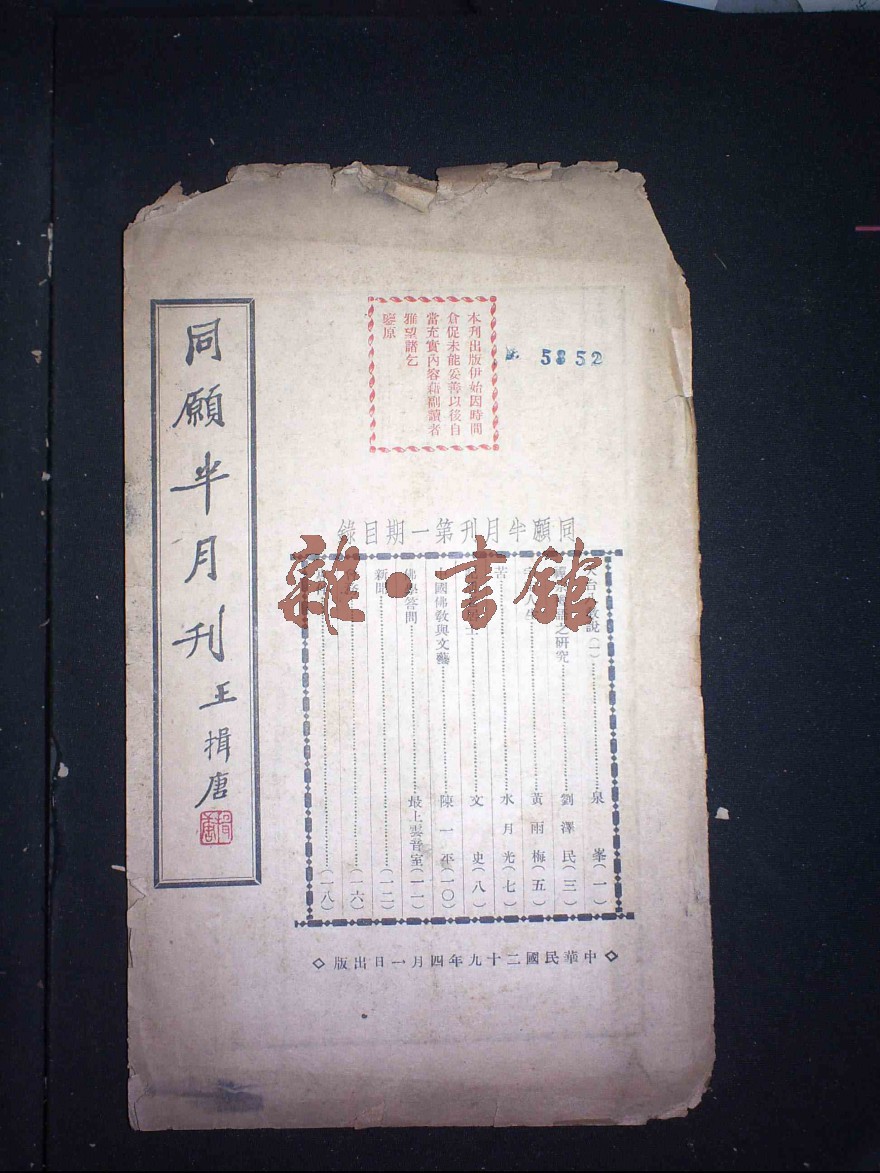 同願半月刊
王揖唐
本刊出版伊始因時間
倉促未能妥善以後自
當充實內容藉副讀者
雅望諸乞
鑒原
5352
同願半月刊第一期目錄
說(一)……泉峯(一)
之研究……劉澤民(三)
黃雨梅(五)
苦……水月光(七)
文史(八)
國佛敎與文藝……陳一平(一〇)
佛學答問……最上雲音室(一一)
新聞……(一二)
(一六)
(一八)
中華民國二十九年四月一日出版
雜·書館